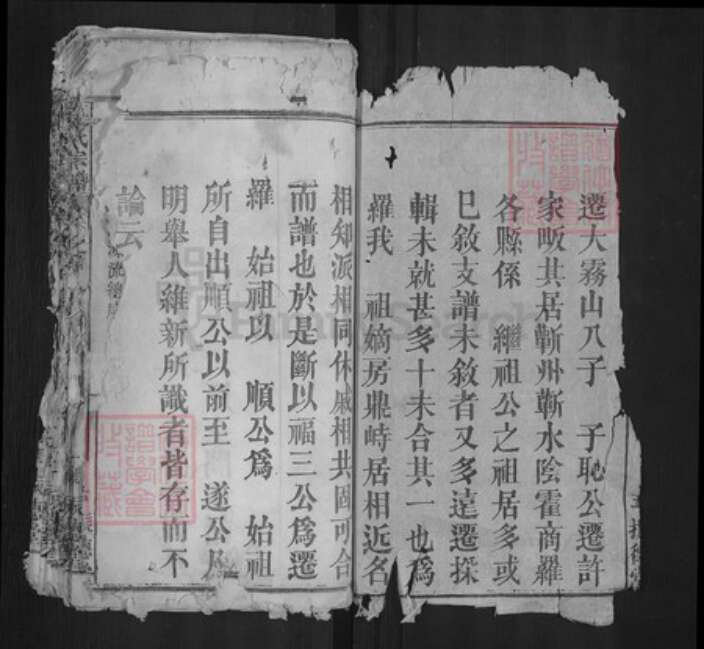 遷大霧山八子　子恥公遷許
家畈其居蘄州蘄水陰霍商羅
各縣係　繼祖公之祖居多或
已敘支譜未敘者又多達遷採
輯未就甚多十未合其一也為
羅我　祖嫡房鼎峙居相近名
相知派相同休戚相共固可合
而譜也於是斷以福三公為遷
羅　始祖以　順公為　始祖
所自出順公以前至　遂公及
明舉人維新所識者皆存而不
論云
譜學會
收藏